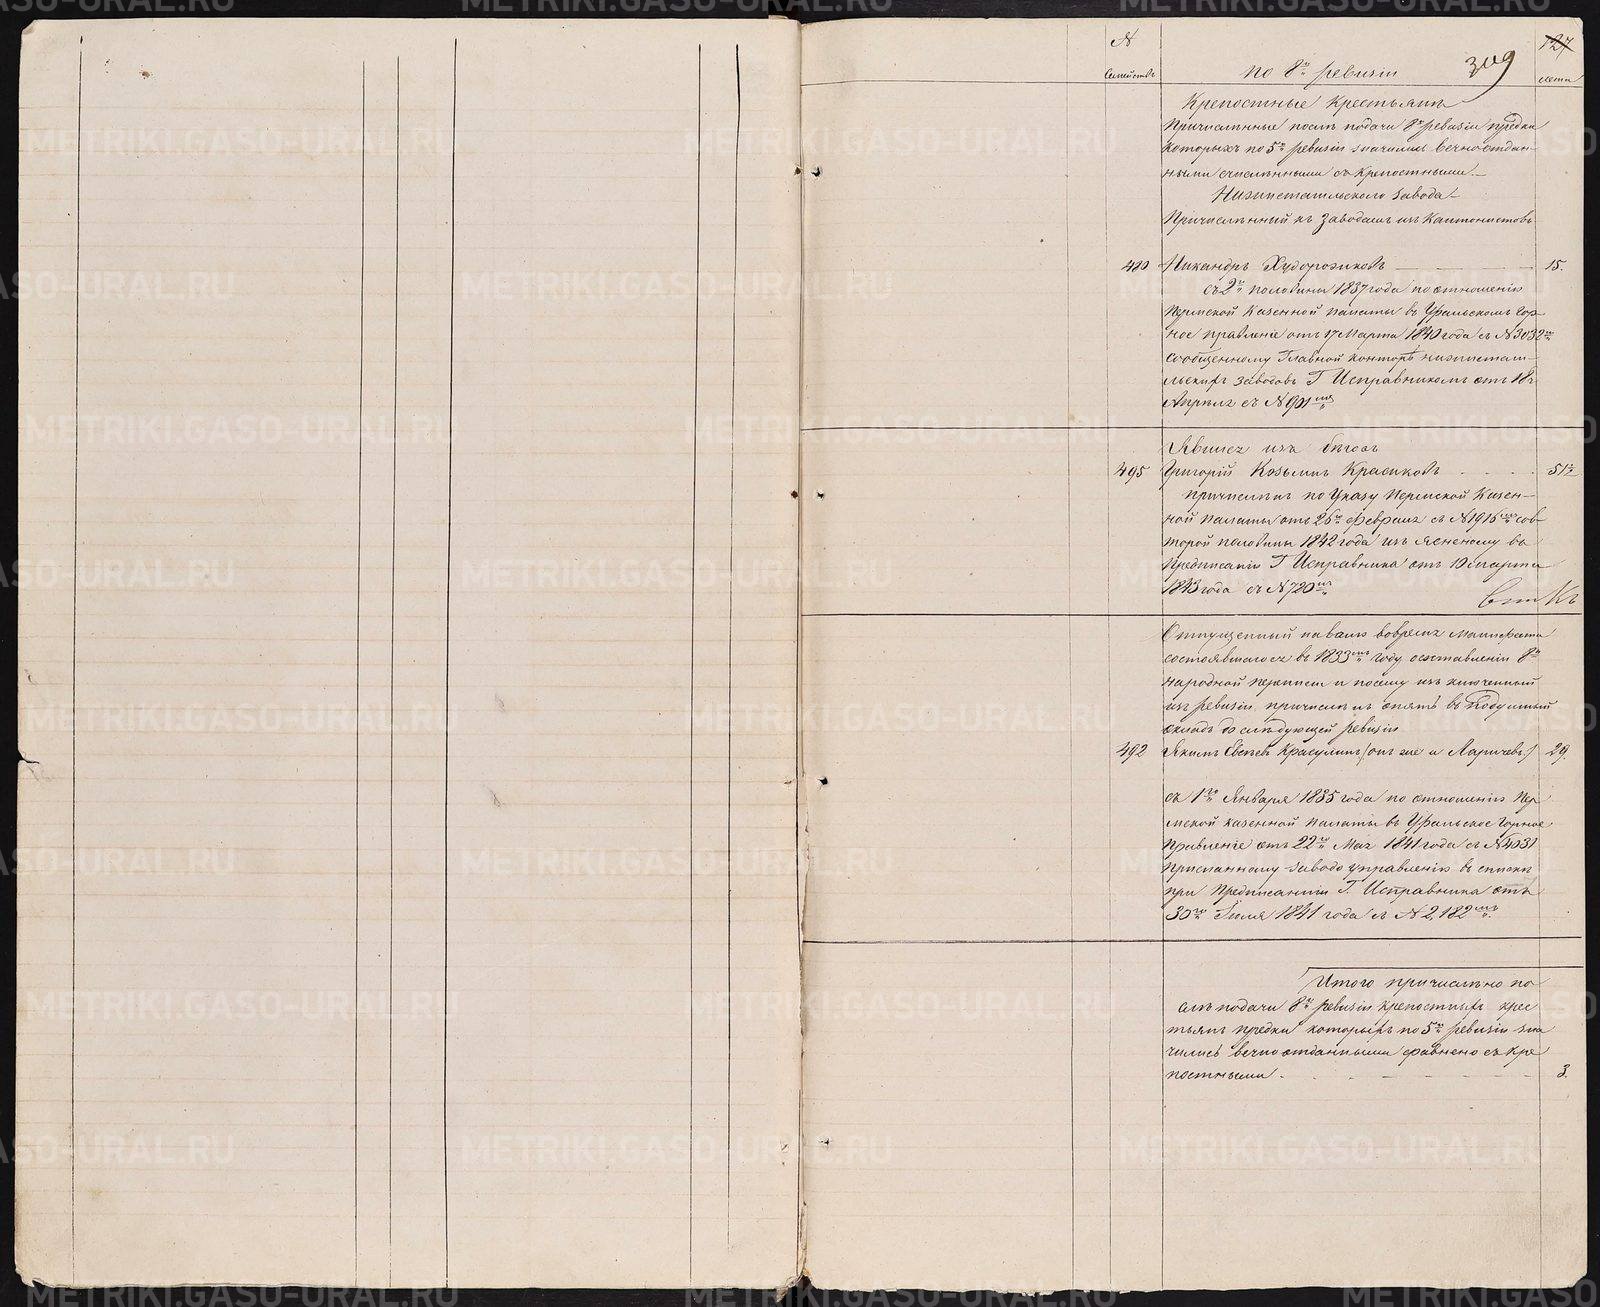 №
семействъ
по 8й ревизіи
309
127
лета
Крепостные Крестьяне
Причисленные после подачи 8й ревизіи предки
которыхъ по 5й ревизіи значились вечноотдан-
ными счисленными съ крепостными.-
Нижнетагильского завода-
Причисленный къ Заводамъ изъ Кантонистовъ
480 Никандръ Худорожковъ 15.
съ 2й половины 1837 года по отношенію
Пермской Казенной палаты въ Уральскомъ Гор-
ное правленіе отъ 17 Марта 1840 года съ №3032мъ
сообщенному Главной конторе нижнетаги-
льскихъ заводовъ Г Исправникомъ отъ 18г
Апреля съ №901мъ
Явился изъ беговъ
495 Григорій Козьминъ Красиковъ 51½
причисленъ по Указу Пермской Казен-
ной палаты отъ 26го февраля съ №1916мъ совъ
торой половины 1842 года изъясненому въ
Предписаніи Г Исправника отъ 10 марта
1843 года съ №720мъ
Отпущенный наваля вовремя манифеста
состоявшагося въ 1833мъ году оставленіи 8й
народной переписи и посему изключенный
изъ ревизіи, причисленъ опять въ подушный
окладъ до следующей ревизіи
492 Якимъ Евсеевъ Красулинъ (онъ же и Ларичевъ) 29.
съ 1го Января 1835 года по отношенію Пер
мской казенной палаты въ Уральское Горное
Правленіе отъ 22го Мая 1841 года съ №4031
присланному заводоуправленію въ списке
при Предписаніи Г. Исправника отъ
30го Іюля 1841 года съ №2,182мъ
Итого причислено по
сле подачи 8й ревизіи крепостныхъ крес
тьянъ предки которыхъ по 5й ревизіи зна
чились вечноотданными сравнено съ кре
постными. 3.
METRIKI.GASO-URAL.RU